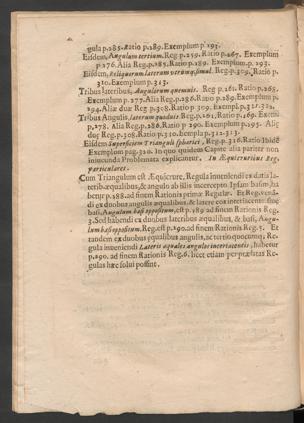 gula p.285. Ratio p.289. Exemplum p.293.
Eisdem, Angulum tertium. Reg. p.259. Ratio p.267. Exemplum
p.276. Alia Reg. p.285. Ratio p.289. Exemplum p.293.
Eisdem, Reliquorum laterum utrumq; simul. Reg. p.309. Ratio p.
310. Exemplum p.313.
Tribus lateribus, Angulorum quemuis. Reg. p.261. Ratio p.268.
Exemplum p.277. Alia Reg. p.286. Ratio p.289. Exemplum p.
294. Aliæ duæ Reg. p.308. Ratio p.309. Exempl. 311. 312.
Tribus Angulis, laterum quoduis Reg. p.261. Ratio p.269. Exem.
p.278. Alia Reg. p.286. Ratio p.290. Exemplum p.295. Aliæ
duæ Reg. p.308. Ratio p.310. Exempla p.312. 313.
Eisdem Superficiem Trianguli sphærici, Reg. p.316. Ratio ibidē
Exemplum pag. 320. In quo quidem Capite alia pariter non
iniucunda Problemata explicantur. In Æquicruribus Reg.
particulares.
Cum Triangulum est Æquicrure, Regula inueniendi ex datis la-
teribus æqualibus, & angulo ab illis intercepto Ipsam basim, ha-
betur p.188. ad finem Rationis primæ Regulæ. Et Reg. inueni-
endi ex duobus angulis æqualibus, & latere eos interiacente siue
basi, Angulum basi oppositum, est p.189 ad finem Rationis Reg.
3. Sed habendi ex duobus lateribus æqualibus, & basi, Angu-
lum basi oppositum. Reg. est p.190. ad finem Rationis Reg. 5. Et
tandem ex duobus æqualibus angulis, ac tertio quocumq; Re-
gula inueniendi Lateris æquales angulos interiacentis, habetur
p.190. ad finem Rationis Reg. 6. licet etiam per prædictas Re-
gulas hæc solui possint.